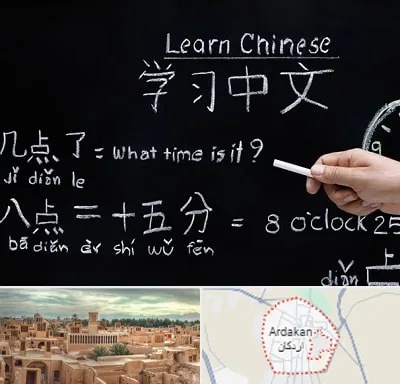 Learn Chinese
学习中文
几点了 = What time is it?
jǐ diǎn le
八点二十五分 = 8 o'clock 25
bā diǎn èr shí wǔ fēn
9
diǎn
Ardakan
اردکان